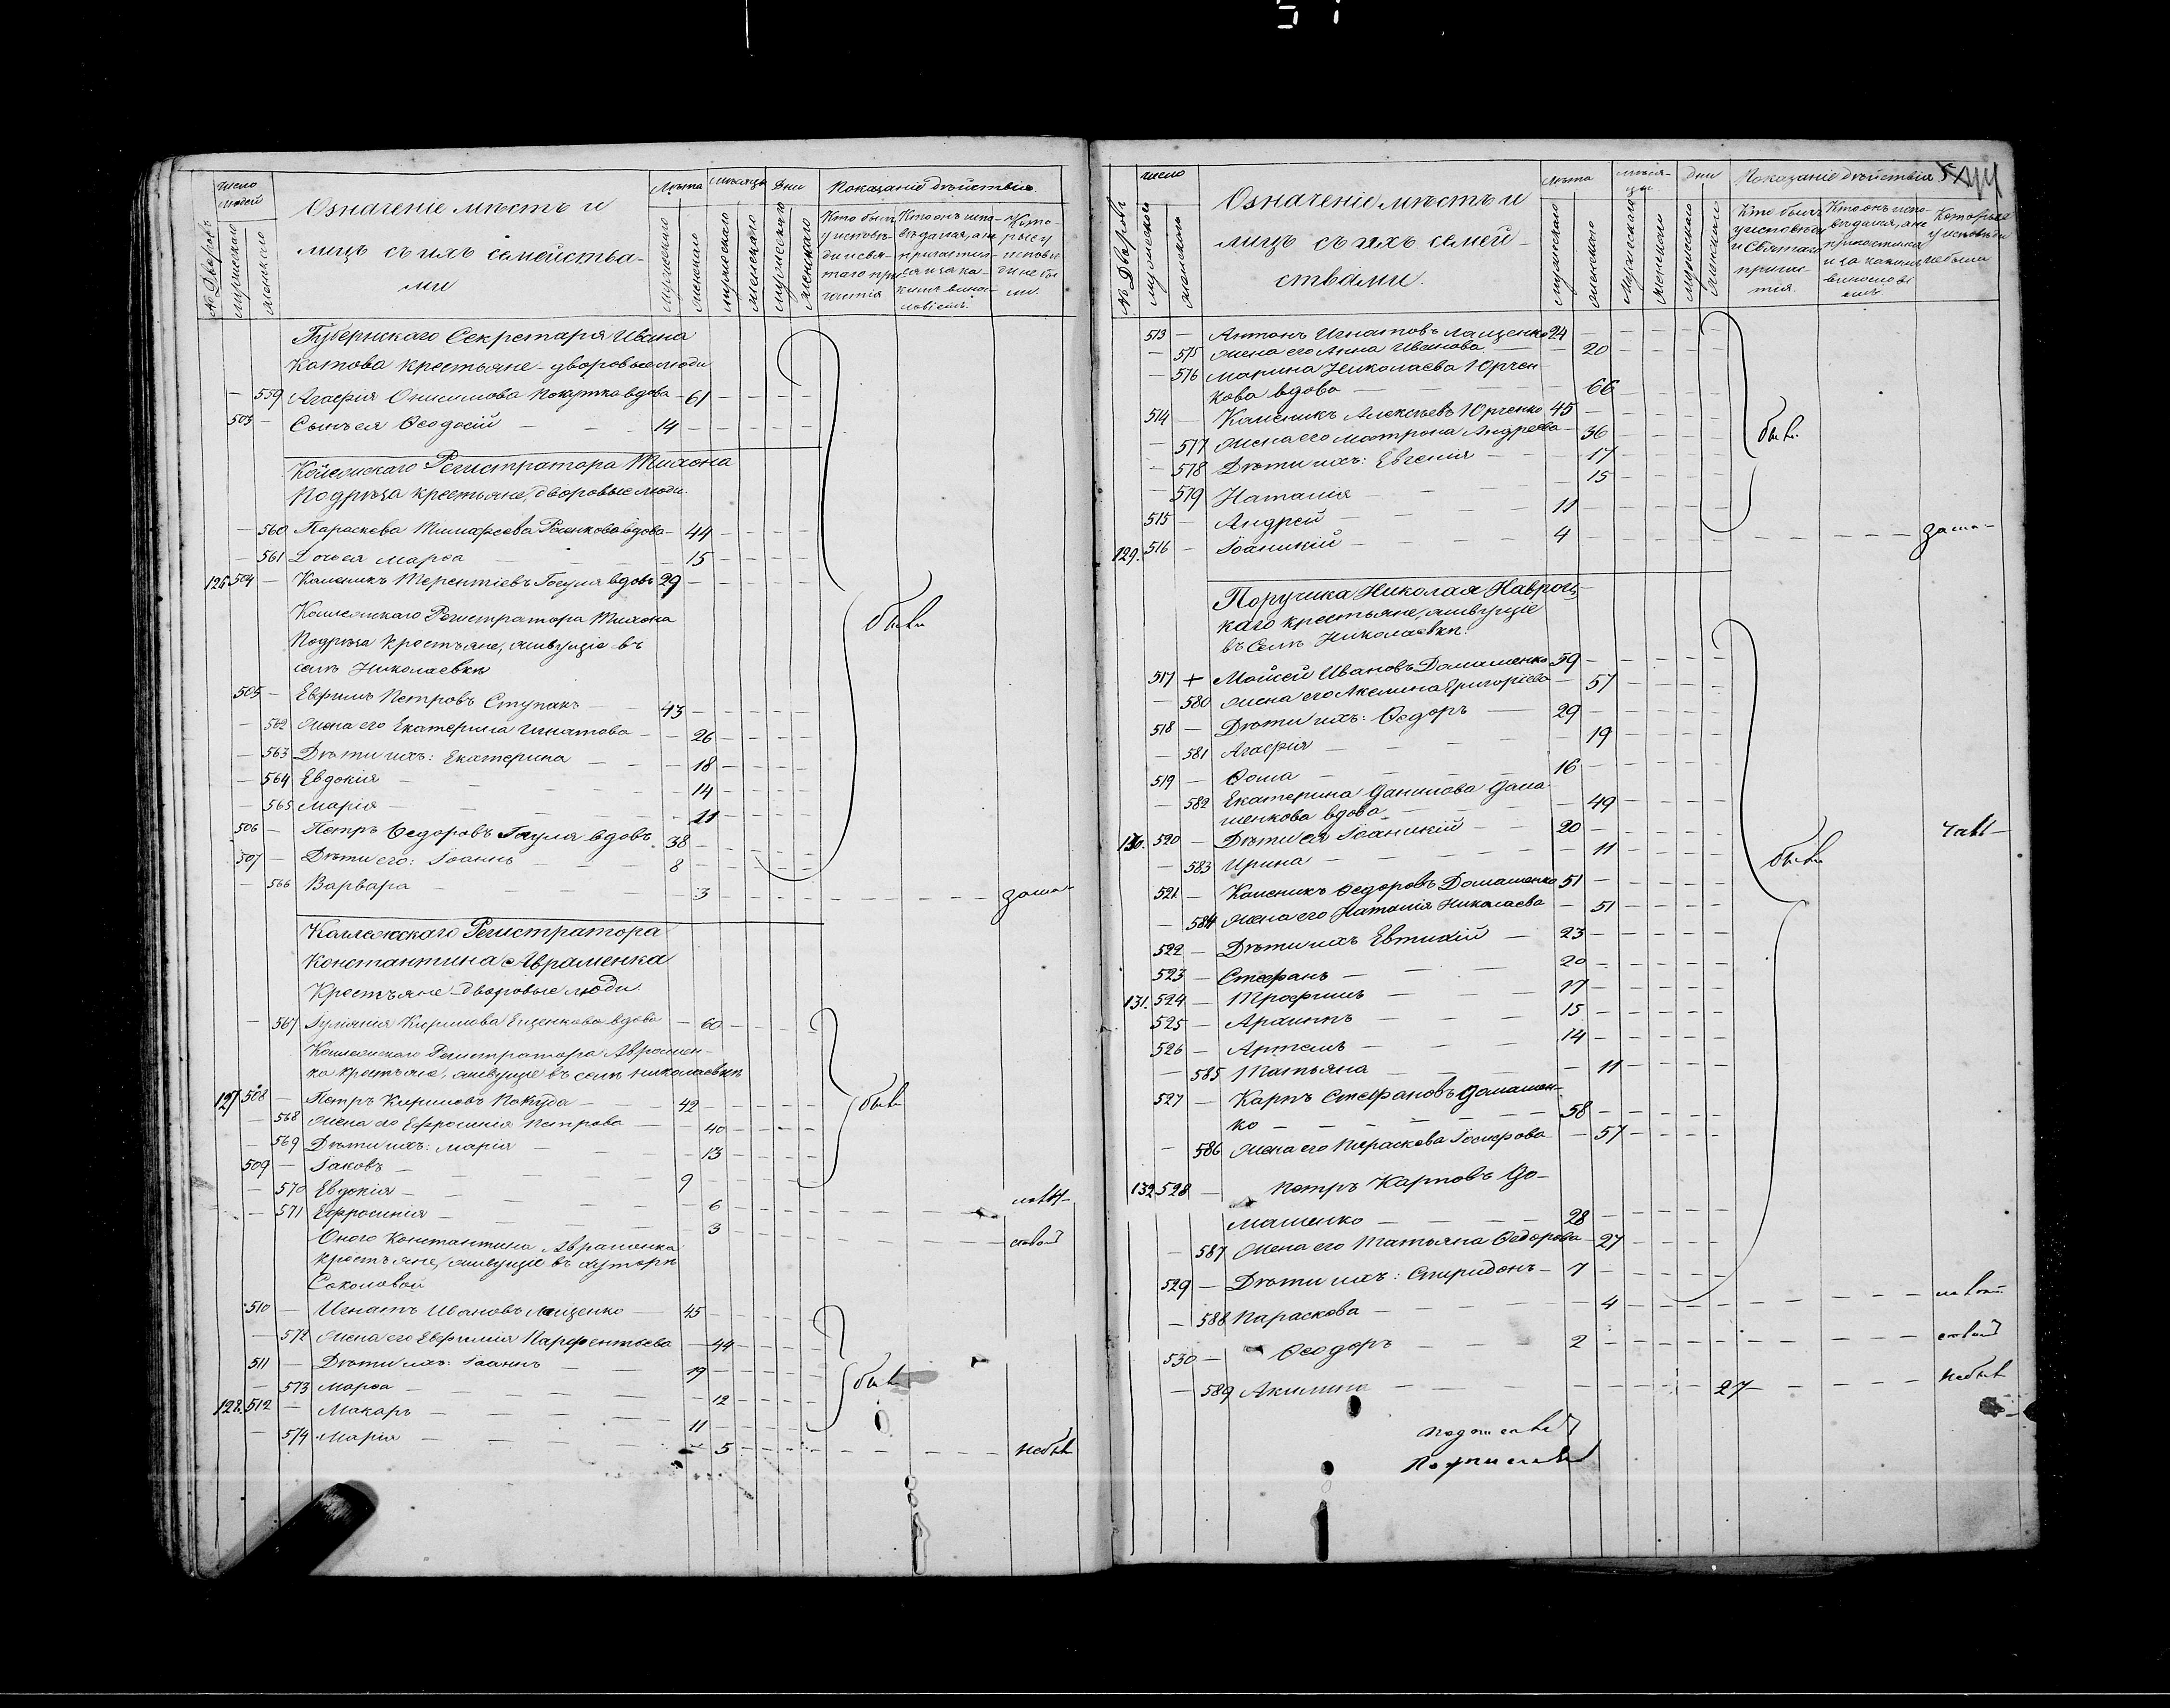 число
людей
№ Дворовъ
мужескаго
женскаго
Означеніе мѣстъ и
лицъ съ ихъ семейства-
ми
Лѣта
мѣсяцы
Дни
мужескаго
женскаго
мужескаго
женскаго
мужескаго
женскаго
Показаніе дѣйствія.
Кто былъ
у исповѣ-
ди и свя-
таго при
частія
Кто онъ испо-
вѣдался, а не
причастил-
ся и за ка-
кимъ вино-
словіемъ.
Кото-
рые у
исповѣ
ди не бы
ли.
Губернскаго Секретаря Ивана
Котова крестьяне - дворовые люди
— 559 Агафія Онисимова вдова — 61
503 — Сынъ ея Ѳеодосій — 14
Регистратора Тихона
Подрѣза крестьяне, дворовые люди.
— 560 Параскева вдова — 44
— 561 Дочь ея Марѳа — 15
126. 504 — Каленикъ Терентіевъ Гогуля вдовъ 29
Коллежскаго Регистратора Тихона
Подрѣза крестьяне, живущіе въ
селѣ Николаевкѣ
505 — Евфимъ Петровъ Ступакъ — 43
— 562 Жена его Екатерина Игнатова — 26
— 563 Дѣти ихъ: Екатерина — 18
— 564 Евдокія — 14
— 565 Марія — 11
506 — Петръ Ѳедоровъ вдовъ. 38
507 — Дѣти его: Іоаннъ — 8
— 566 Варвара — 3
были
Коллежскаго Регистратора
Константина Авраменка
Крестьяне - дворовые люди.
— 567 Іуліянія Кирилова Ещенкова вдова — 60
Коллежскаго Регистратора Авромен-
ка крестьяне, живущіе въ селѣ Николаевкѣ
127 508 — Петръ Кириловъ Покуда — 42
— 568 Жена его Ефросинія Петрова — 40
— 569 Дѣти ихъ: Марія — 13
509 — Іаковъ — 9
— 570 Евдокія — 6
— 571 Ефросинія — 3
были
Оного Константина Авраменка
крестьяне, живущіе въ хуторѣ
Соколовой
510 — Игнатъ Ивановъ Лащенко — 45
— 572 Жена его Евфимія Парфентіева — 44
511 — Дѣти ихъ: Іоаннъ — 19
— 573 Марѳа — 12
128. 512 — Макаръ — 11
— 574 Марія — 5
были
небыв
число
№ Дворовъ
мужескаго
женскаго
Означеніе мѣстъ и
лицъ съ ихъ семей-
ствами.
Лѣта
мѣся-
цы
Дни
мужескаго
женскаго
мужескаго
женскаго
мужескаго
женскаго
Показаніе дѣйствія
Кто былъ
у исповѣди
и Святаго
причас-
тія.
Кто онъ испо-
вѣдался, а не
причастился
и за какимъ
винослові
емъ.
Которые
у исповѣди
не были
513 — Антонъ Игнатовъ Лащенко 24
— 575 Жена его Анна Иванова — 20
— 576 Марина Николаева Юрчен
кова вдова — 66
514 — Каленикъ Алексѣевъ Юрченко 45
— 577 Жена его Матрона Андреева — 36
— 578 Дѣти ихъ: Евгенія — 17
— 579 Наталія — 15
515 — Андрей — 11
129. 516 — Іоаникій — 4
были
Поручика Николая Навроц-
каго крестьяне, живущіе
въ Селѣ Николаевкѣ.
517 + Моисей Ивановъ Домашенко 59
— 580 Жена его Акелина Григоріева — 57
518 — Дѣти ихъ: Ѳедоръ — 29
— 581 Агафія — 19
519 — Ѳома — 16
— 582 Екатерина Данилова Дома
шенкова вдова — 49
130. 520 — Дѣти ея Іоаникій — 20
— 583 Ирина — 11
521 — Каленикъ Ѳедоровъ Домашенко 51
— 584 Жена его Наталія Николаева — 51
522 — Дѣти ихъ Евтихій — 23
523 — Стефанъ — 20
131. 524 — Трофимъ — 17
525 — Архипъ — 15
526 — Артемъ — 14
— 585 Татьяна — 11
527 — Карпъ Стефановъ Домашен-
ко — 58
— 586 Жена его Параскева — 57
132 528 — Петръ Карповъ До-
машенко — 28
— 587 Жена его Татьяна Ѳедорова — 27
529 — Дѣти ихъ: Спиридонъ — 7
— 588 Параскова — 4
530 — Ѳеодоръ — 2
— 589 Акилина — 27
были
небыв